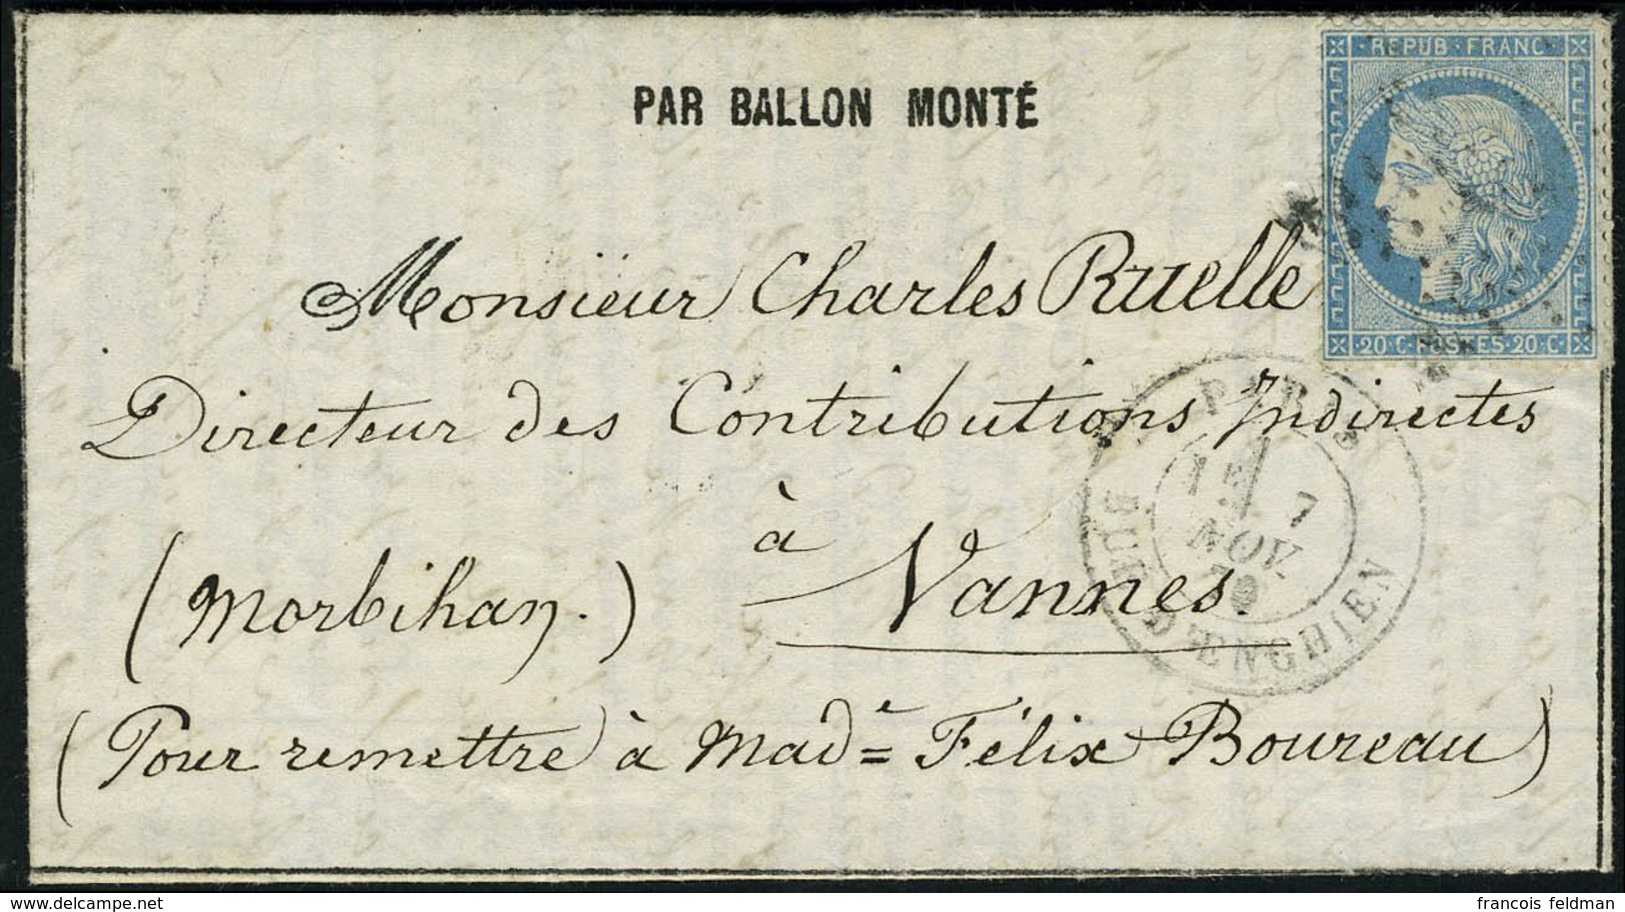 REPUB·FRANC
PAR BALLON MONTÉ
Monsieur Charles Ruelle
20·C·POSTES·20·C·
Directeur des Contributions Indirectes
à
Vannes.
(Morbihan.)
(Pour remettre à Made Félix Boureau)
PARIS
7
NOV.
70
RUE D'ENGHIEN
delcampe.net
francois feldman